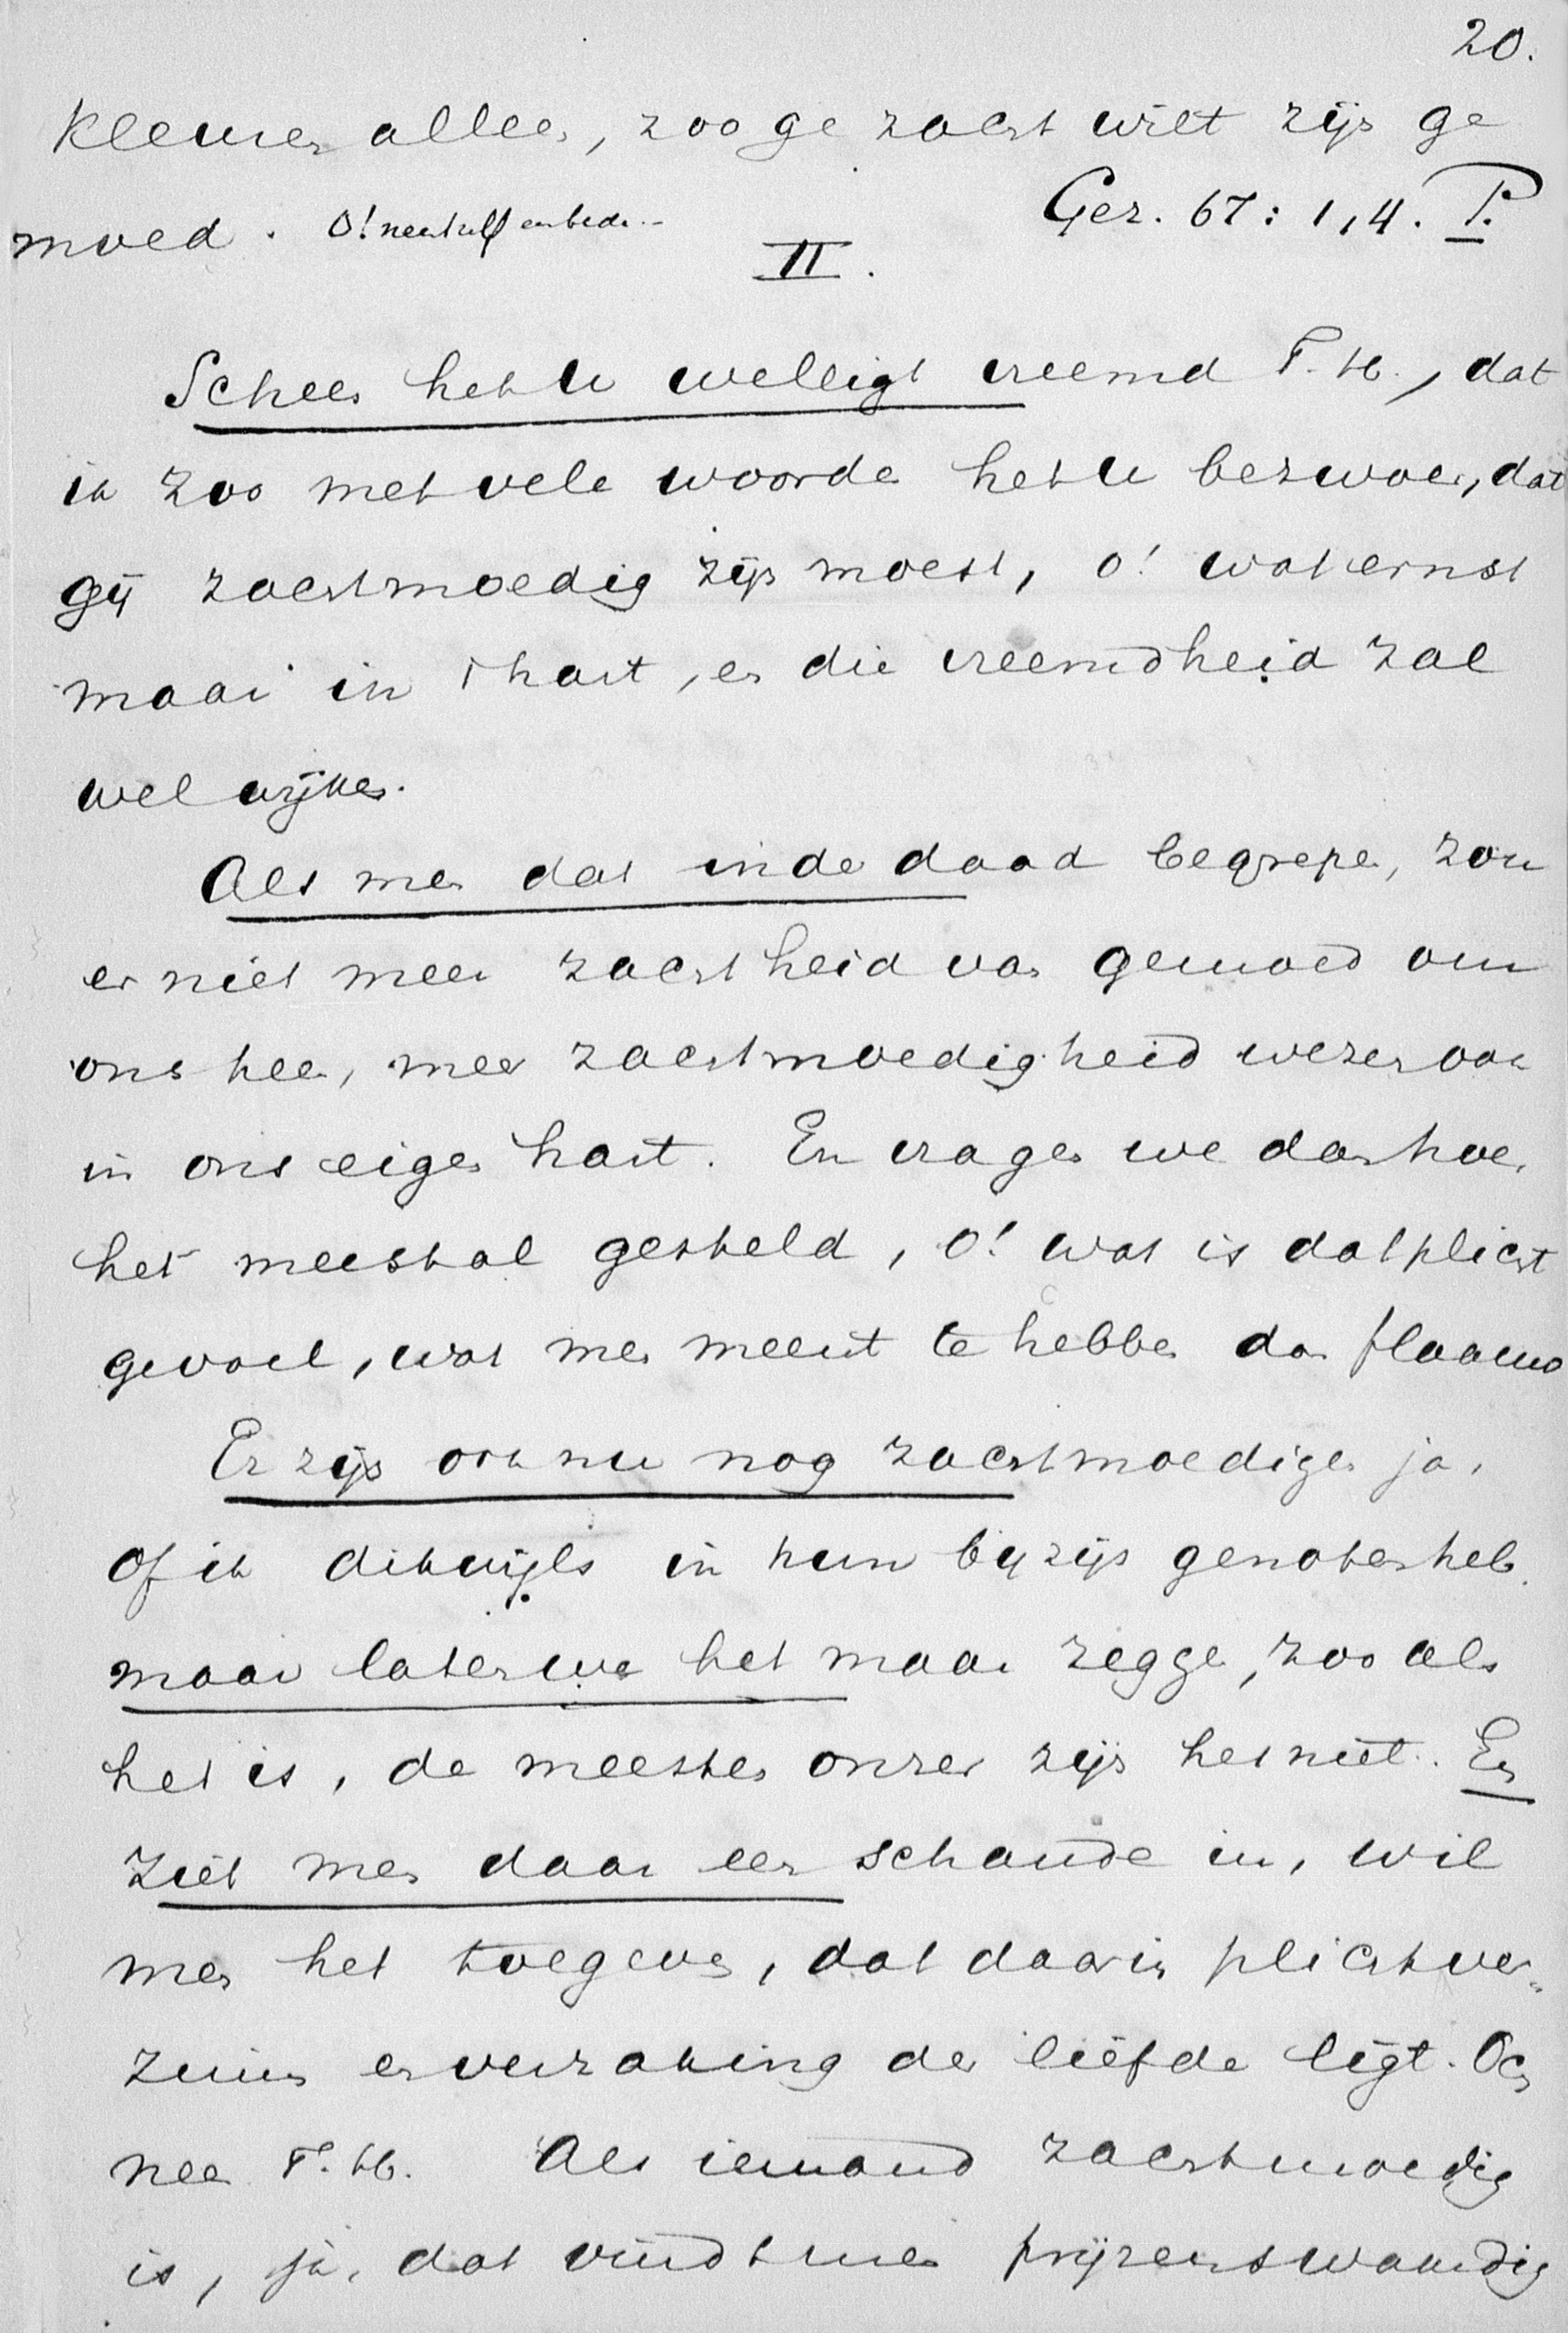 20.
kleuren allen, zoo ge zacht wilt zijn ge
moed. O! neen zelf een bede..
Gez. 67: 1,4. P.
II.
Scheen het U welligt vreemd T. H., dat
ik zoo met vele woorden het U bezwoer, dat
gij zachtmoedig zijn moest, o! wat ernst
maar in 't hart, en die vreemdheid zal
wel wijken.
Als men dat inde daad begrepen, zou
er niet meer zachtheid van gemoed om
ons heen, meer zachtmoedigheid wezen ook
in ons eigen hart. En vragen we dan hoe
het meestal gesteld, o! wat is dat plicht
gevoel, wat men meent te hebben dan flaauw
Er zijn ook nu nog zachtmoedigen ja,
of ik dikwijls in hun bijzijn genoten heb.
maar laten we het maar zeggen, zoo als
het is, de meesten onzer zijn het niet. En
ziet men daar een schande in, wil
men het toegeven, dat daarin plichtver„
zuim en verzaking der liefde ligt. Och
neen T. H. Als iemand zachtmoedig
is, ja, dat vindt men prijzenswaardig